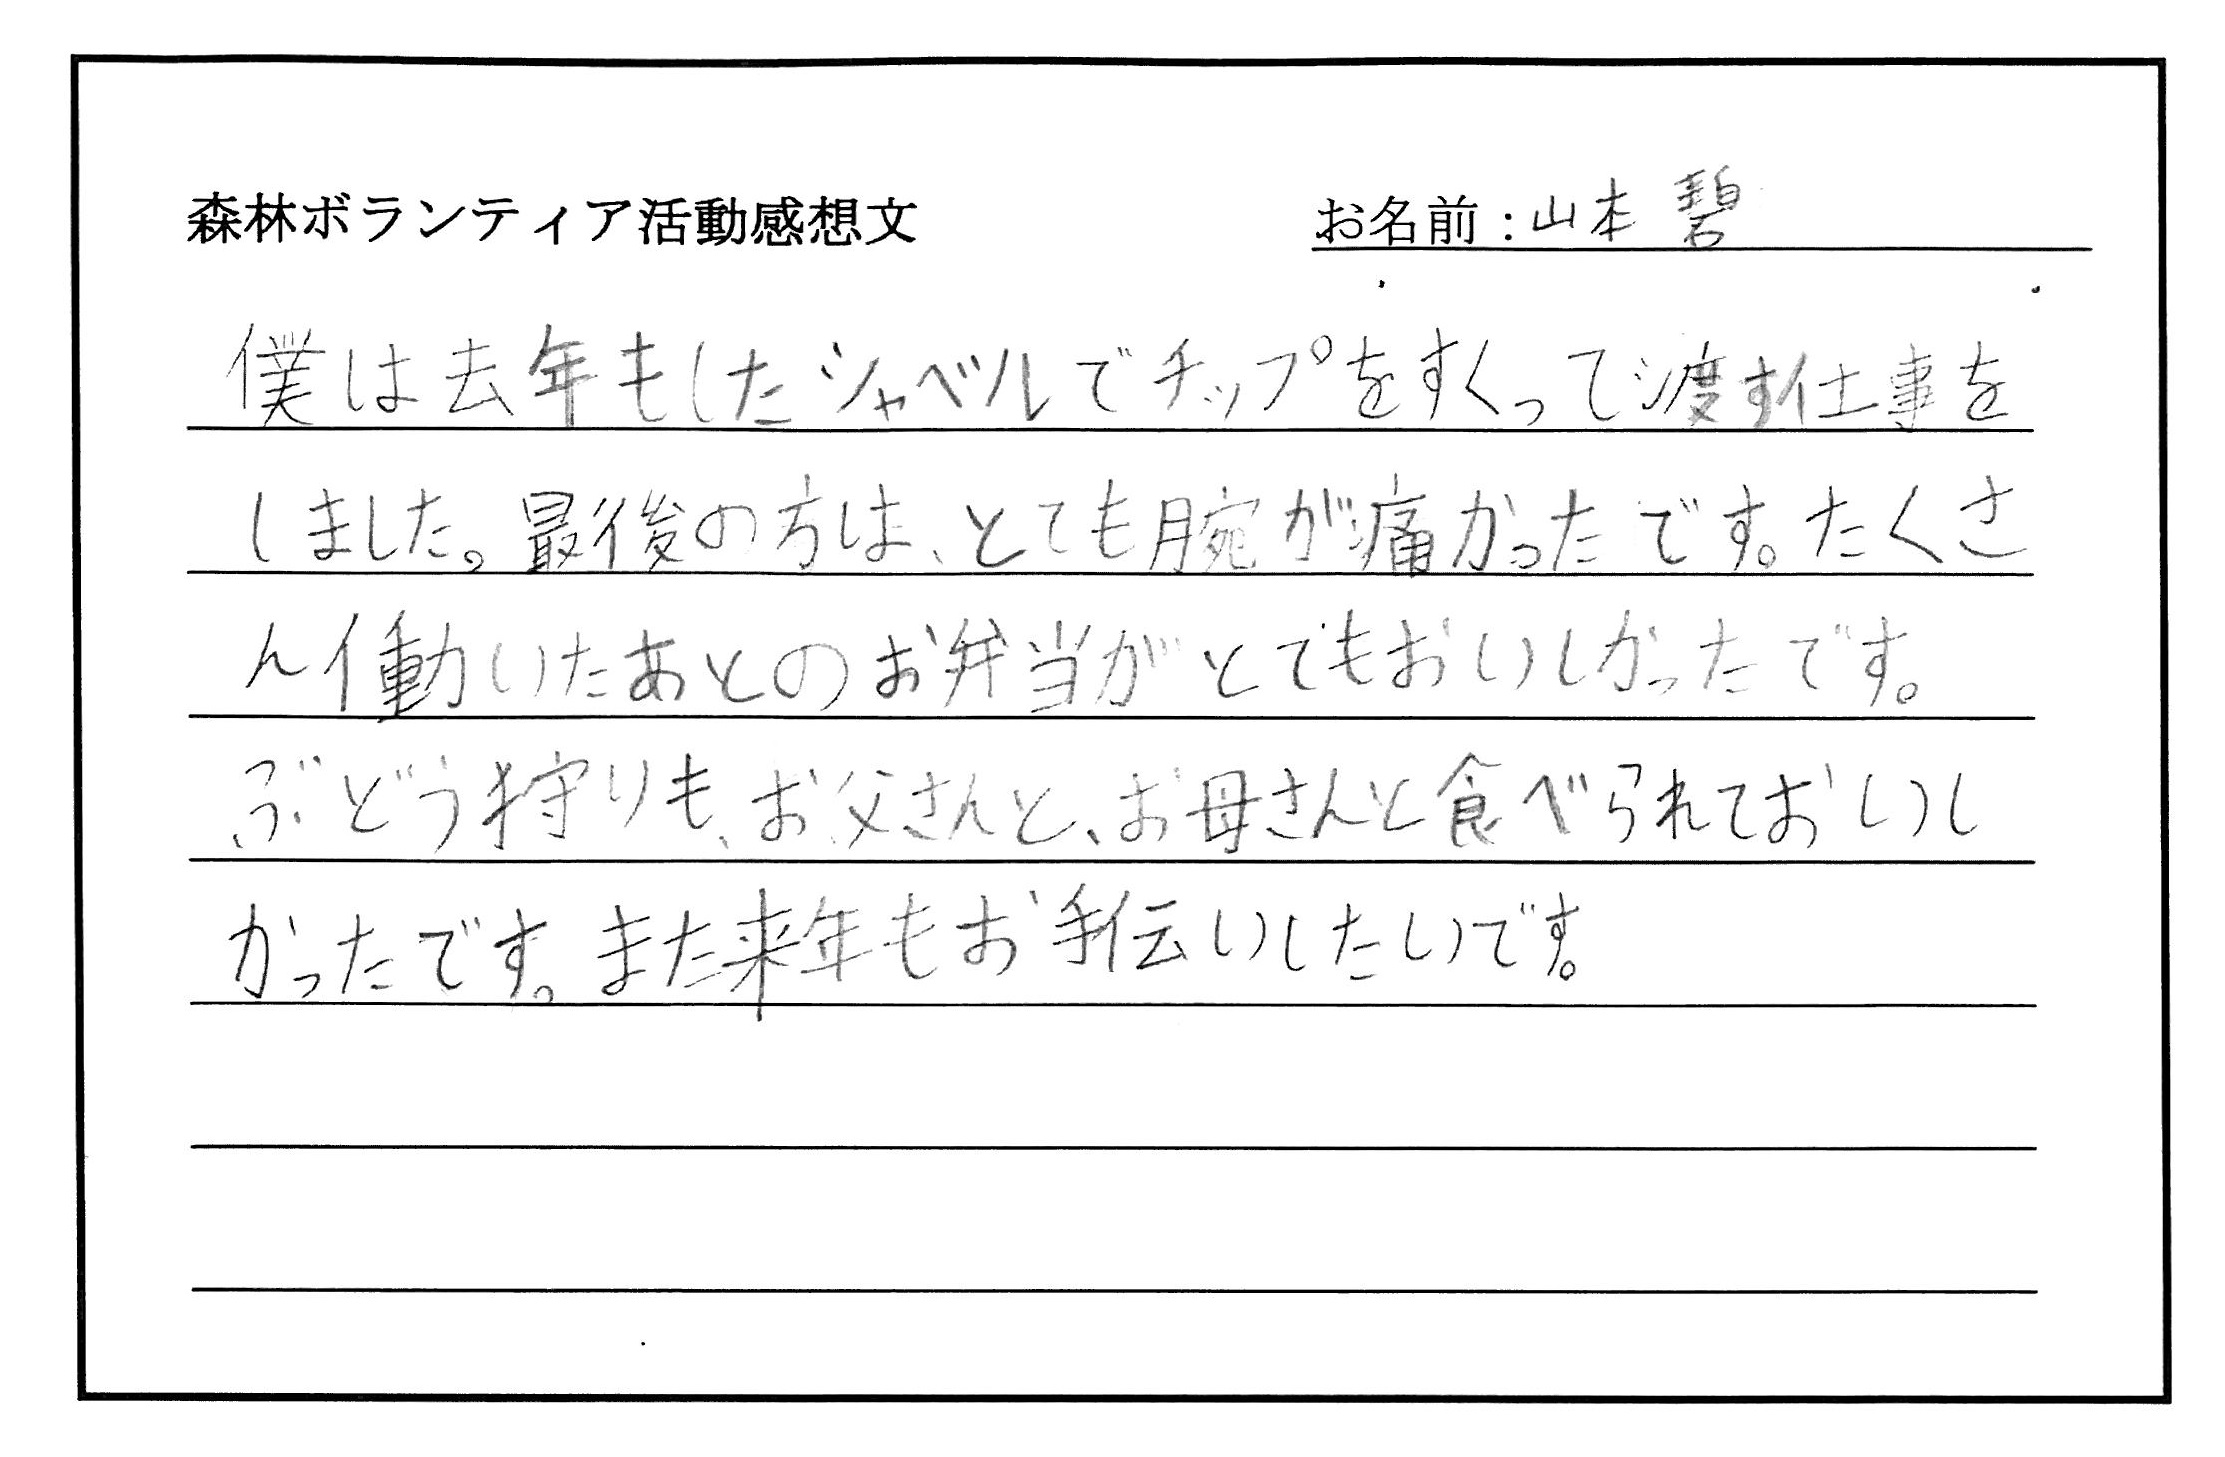 森林ボランティア活動感想文
お名前：山本 碧
僕は去年もしたシャベルでチップをすくって渡す仕事を
しました。最後の方は、とても腕が痛かったです。たくさ
ん働いたあとのお弁当がとてもおいしかったです。
ぶどう狩りも、お父さんと、お母さんと食べられておいし
かったです。また来年もお手伝いしたいです。